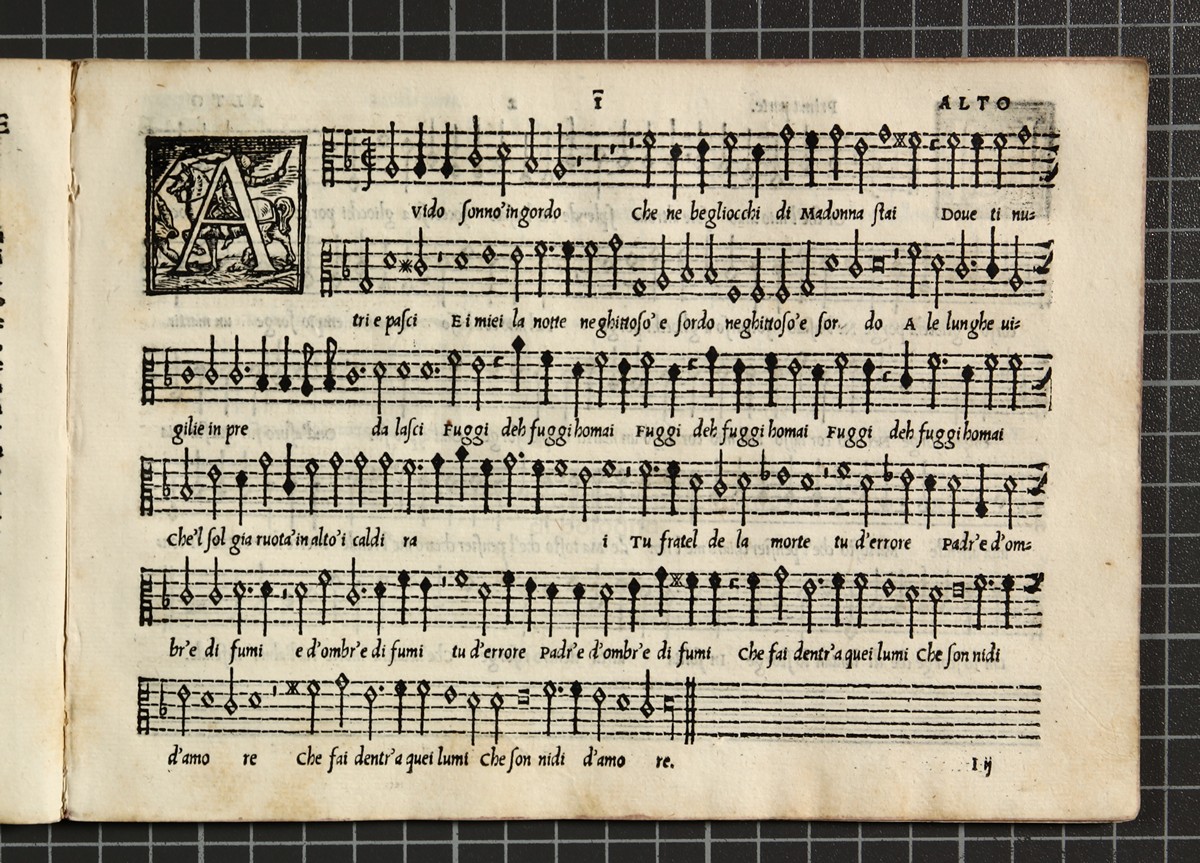 I ALTO
A vido ſonno'ingordo Che ne begliocchi di Madonna ſtai Doue ti nu=
tri e paſci E i miei la notte neghittoſo'e ſordo neghittoſo'e ſor do A le lunghe ui=
gilie in pre da laſci Fuggi deh fuggi homai Fuggi deh fuggi homai Fuggi deh fuggi homai
Che'l ſol gia ruota'in alto'i caldi ra i Tu fratel de la morte tu d'errore Padr'e d'om=
br'e di fumi e d'ombr'e di fumi tu d'errore Padr'e d'ombr'e di fumi Che fai dentr'a quei lumi Che ſon nidi
d'amo re Che fai dentr'a quei lumi Che ſon nidi d'amo re.
I ij